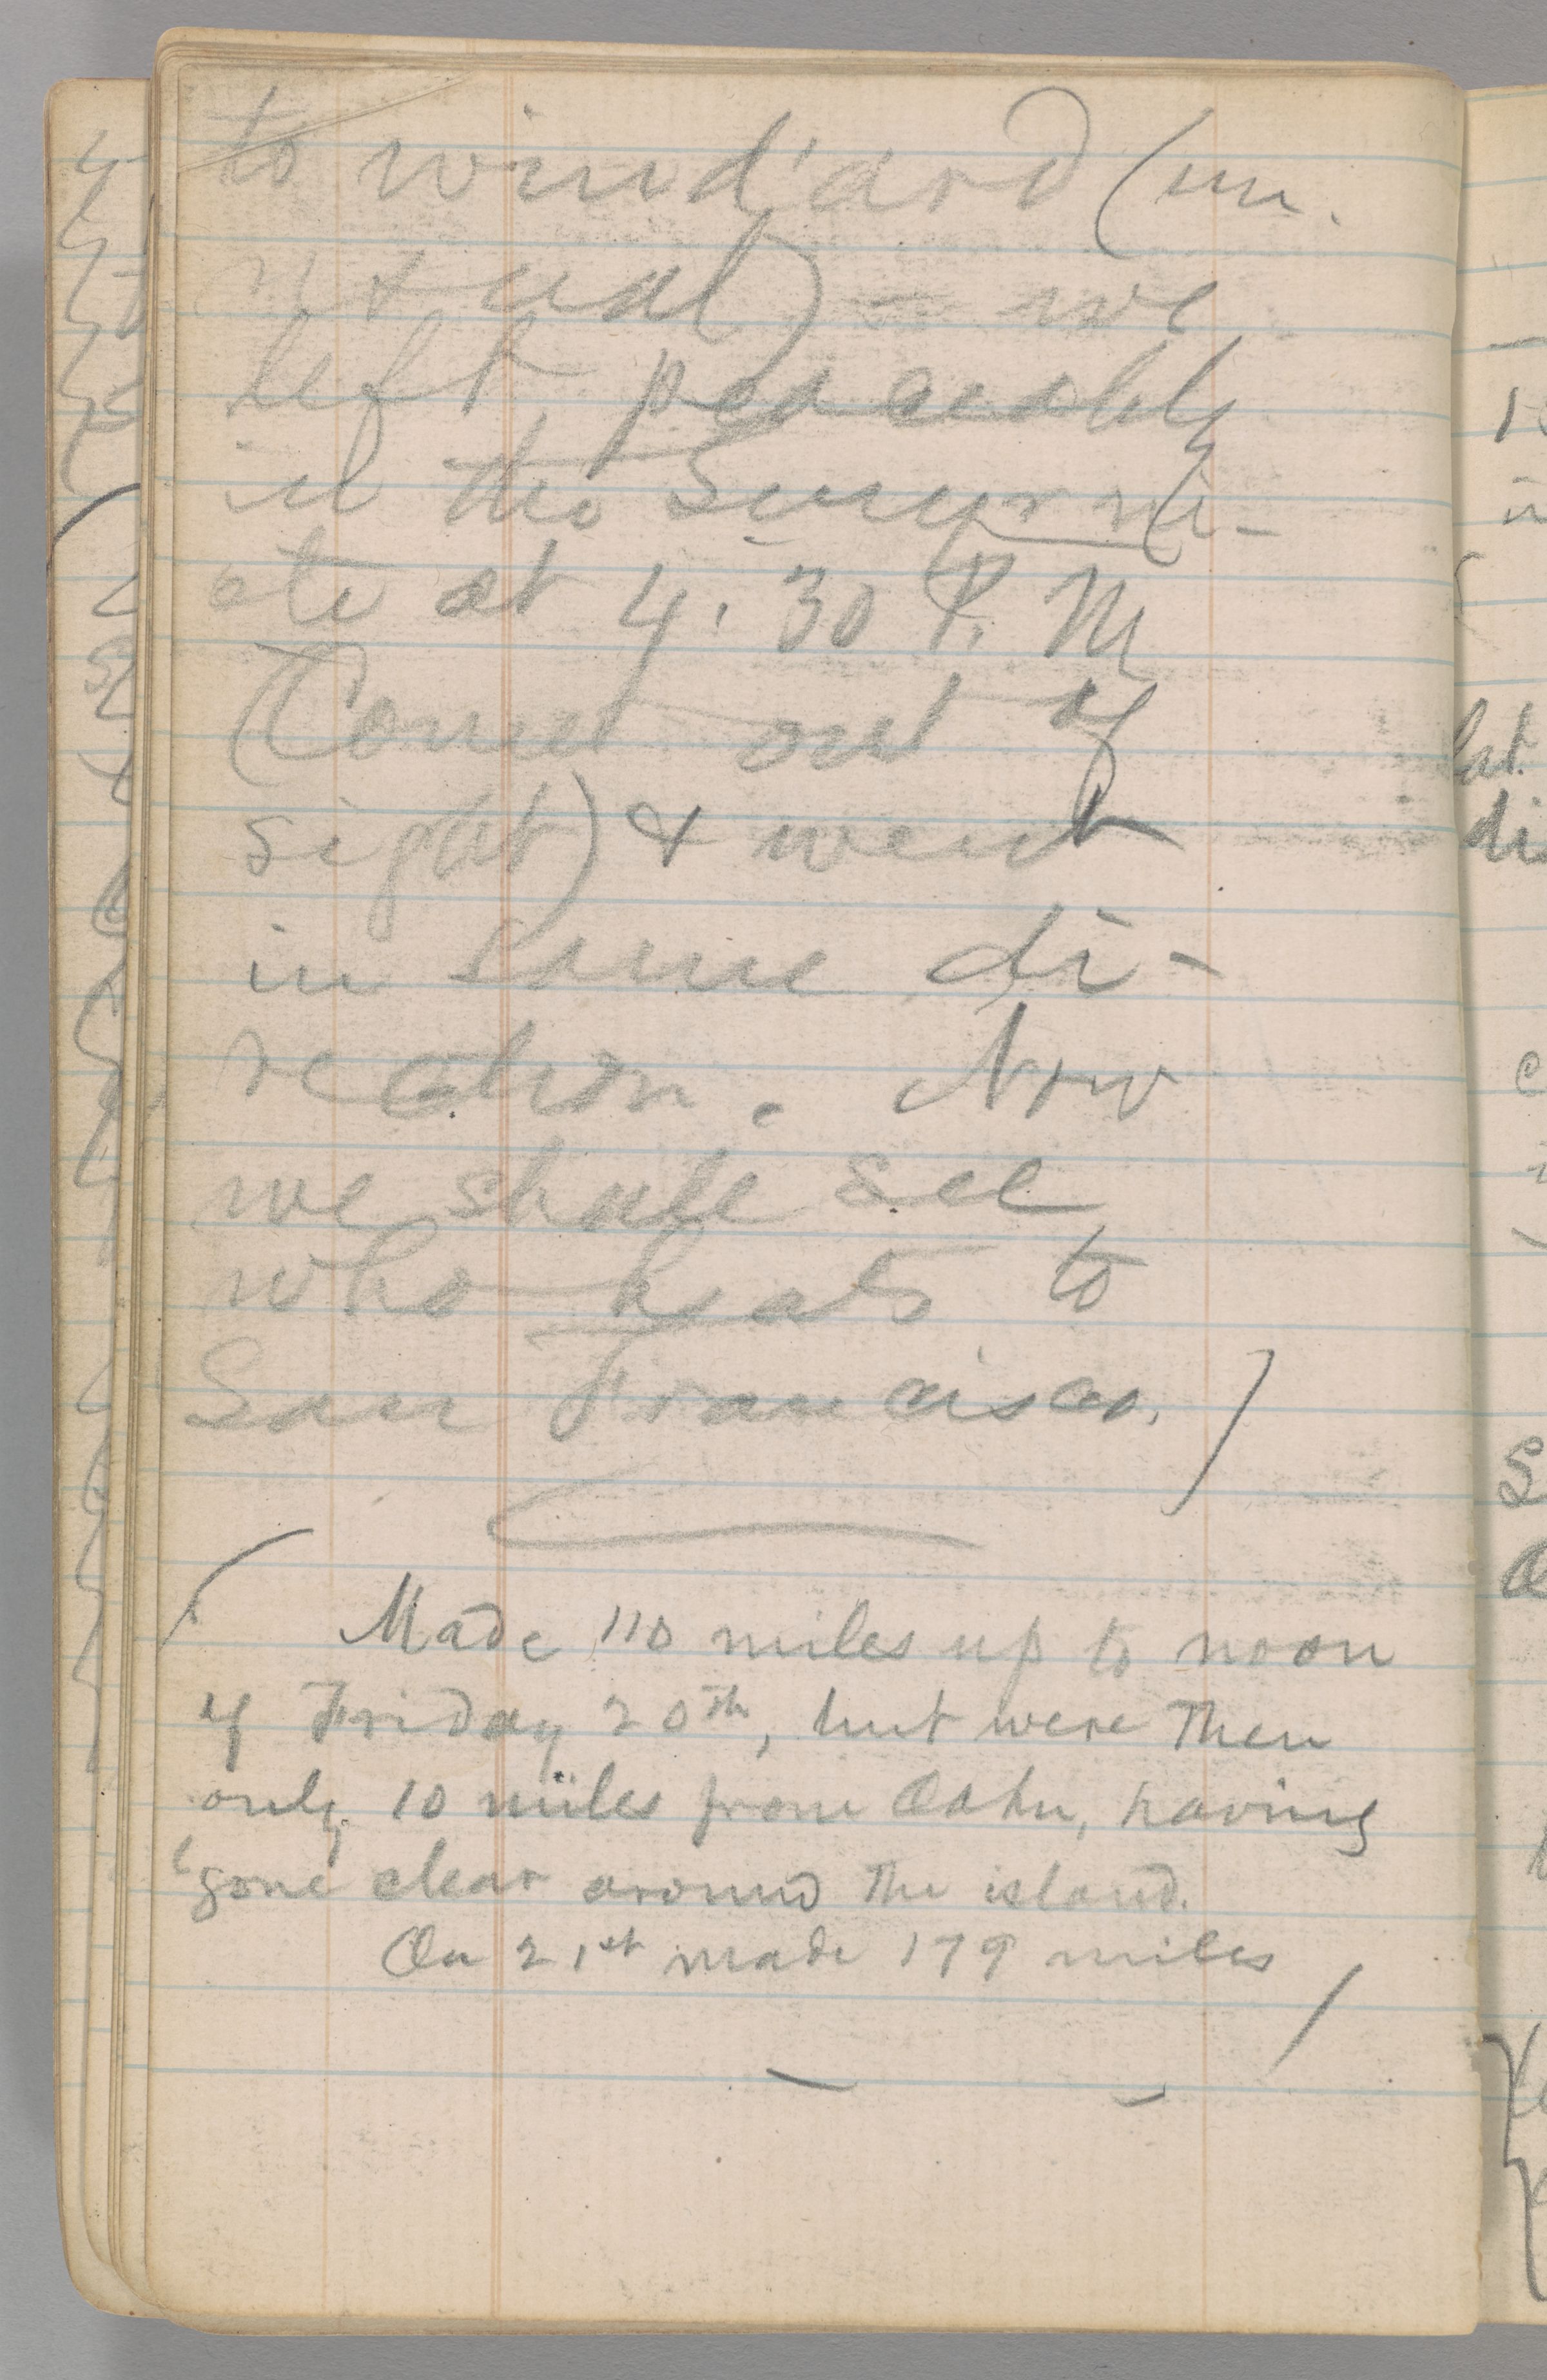 to wind'ard (un.
usual) — we
left peaceably
in the Smyrni-
ote at 4.30 P. M
(Comet out of
sight) & went
in same di-
rection. Now
we shall see
who beats to
San Francisco.)
(Made 110 miles up to noon
of Friday 20th, but were then
only 10 miles from Oahu, having
gone clear around the island.
On 21st made 179 miles